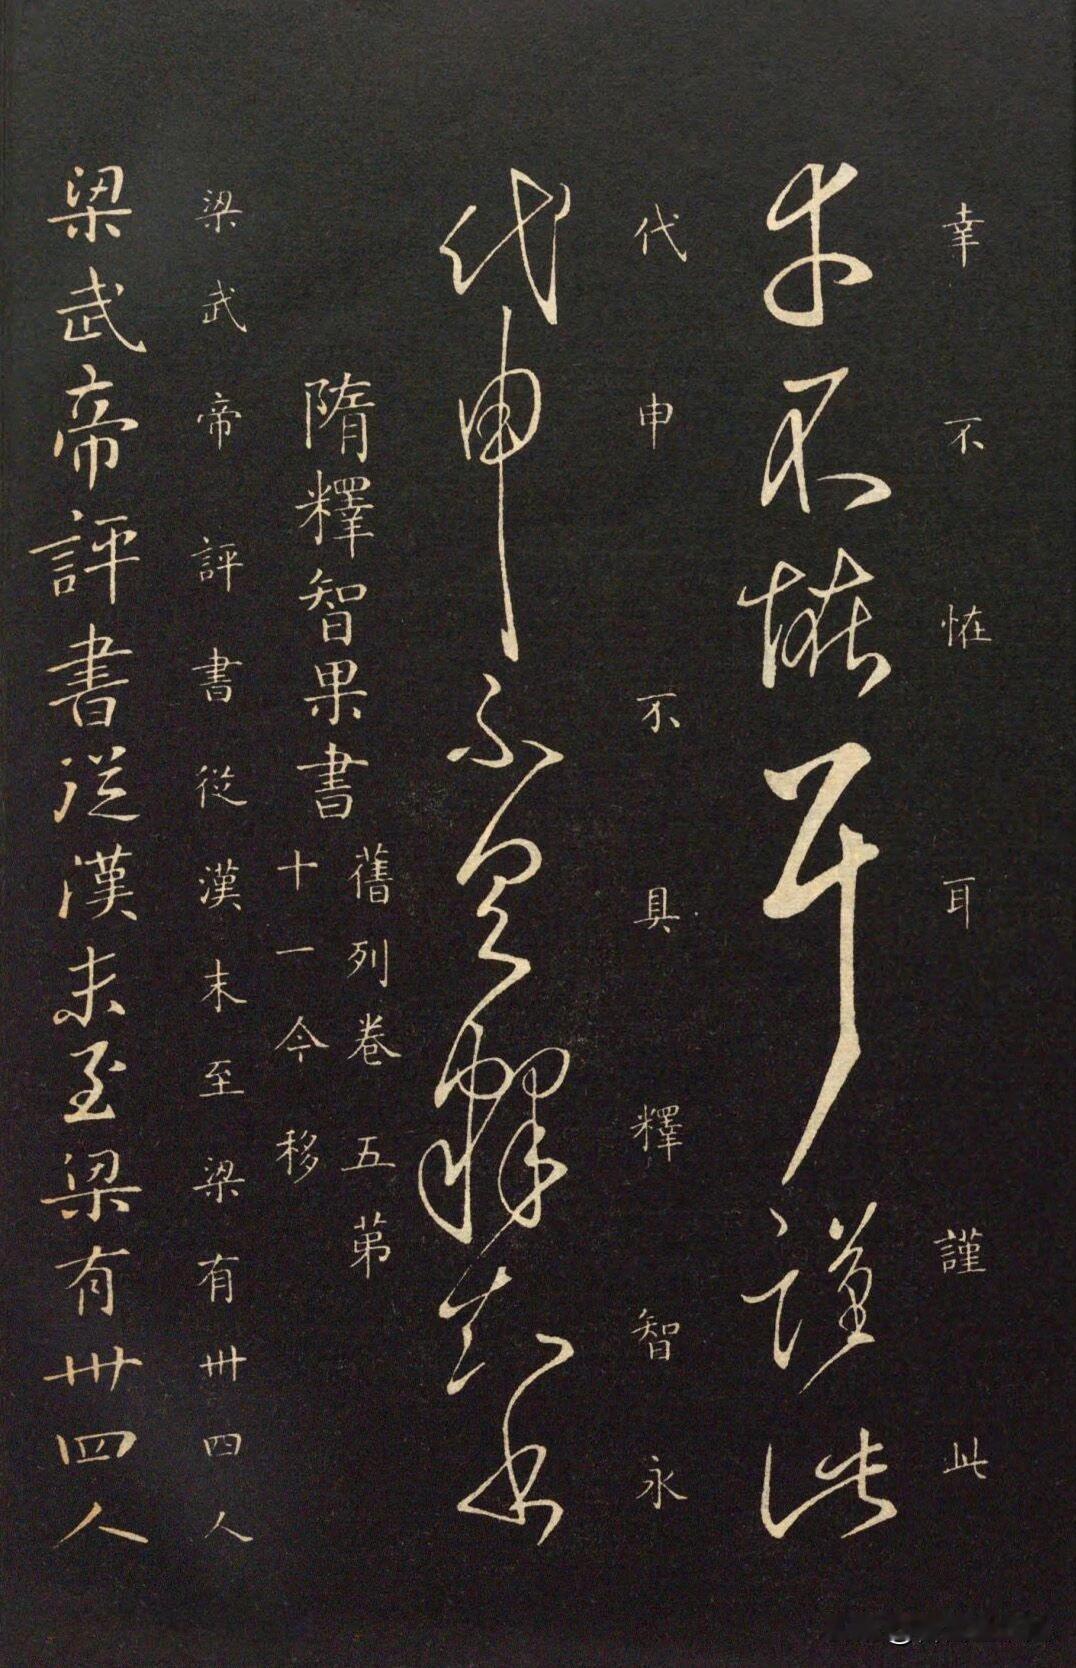 幸不恠耳謹此
幸不恠耳謹此
代申不具釋智永
代申不具釋智永
隋釋智果書
舊列卷五第
十一今移
梁武帝評書從漢末至梁有卅四人
梁武帝評書從漢末至梁有卅四人